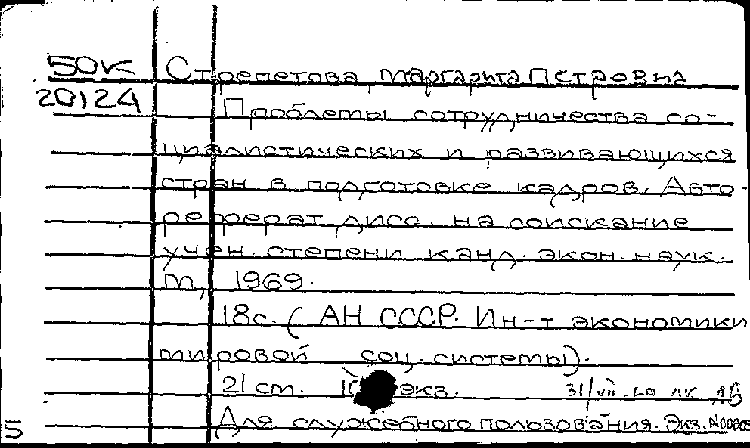 50К Стрепетова, Маргарита Петровна
20124 Проблемы сотрудничества со-
циалистических и развивающихся
стран в подготовке кадров. Авто-
реферат дисс. на соискание
учен. степени канд. экон. наук.
М., 1969.
18с. (АН СССР. Ин-т экономики
мировой соц. системы).
21 см. экз.
Для служебного пользования. Экз.
5